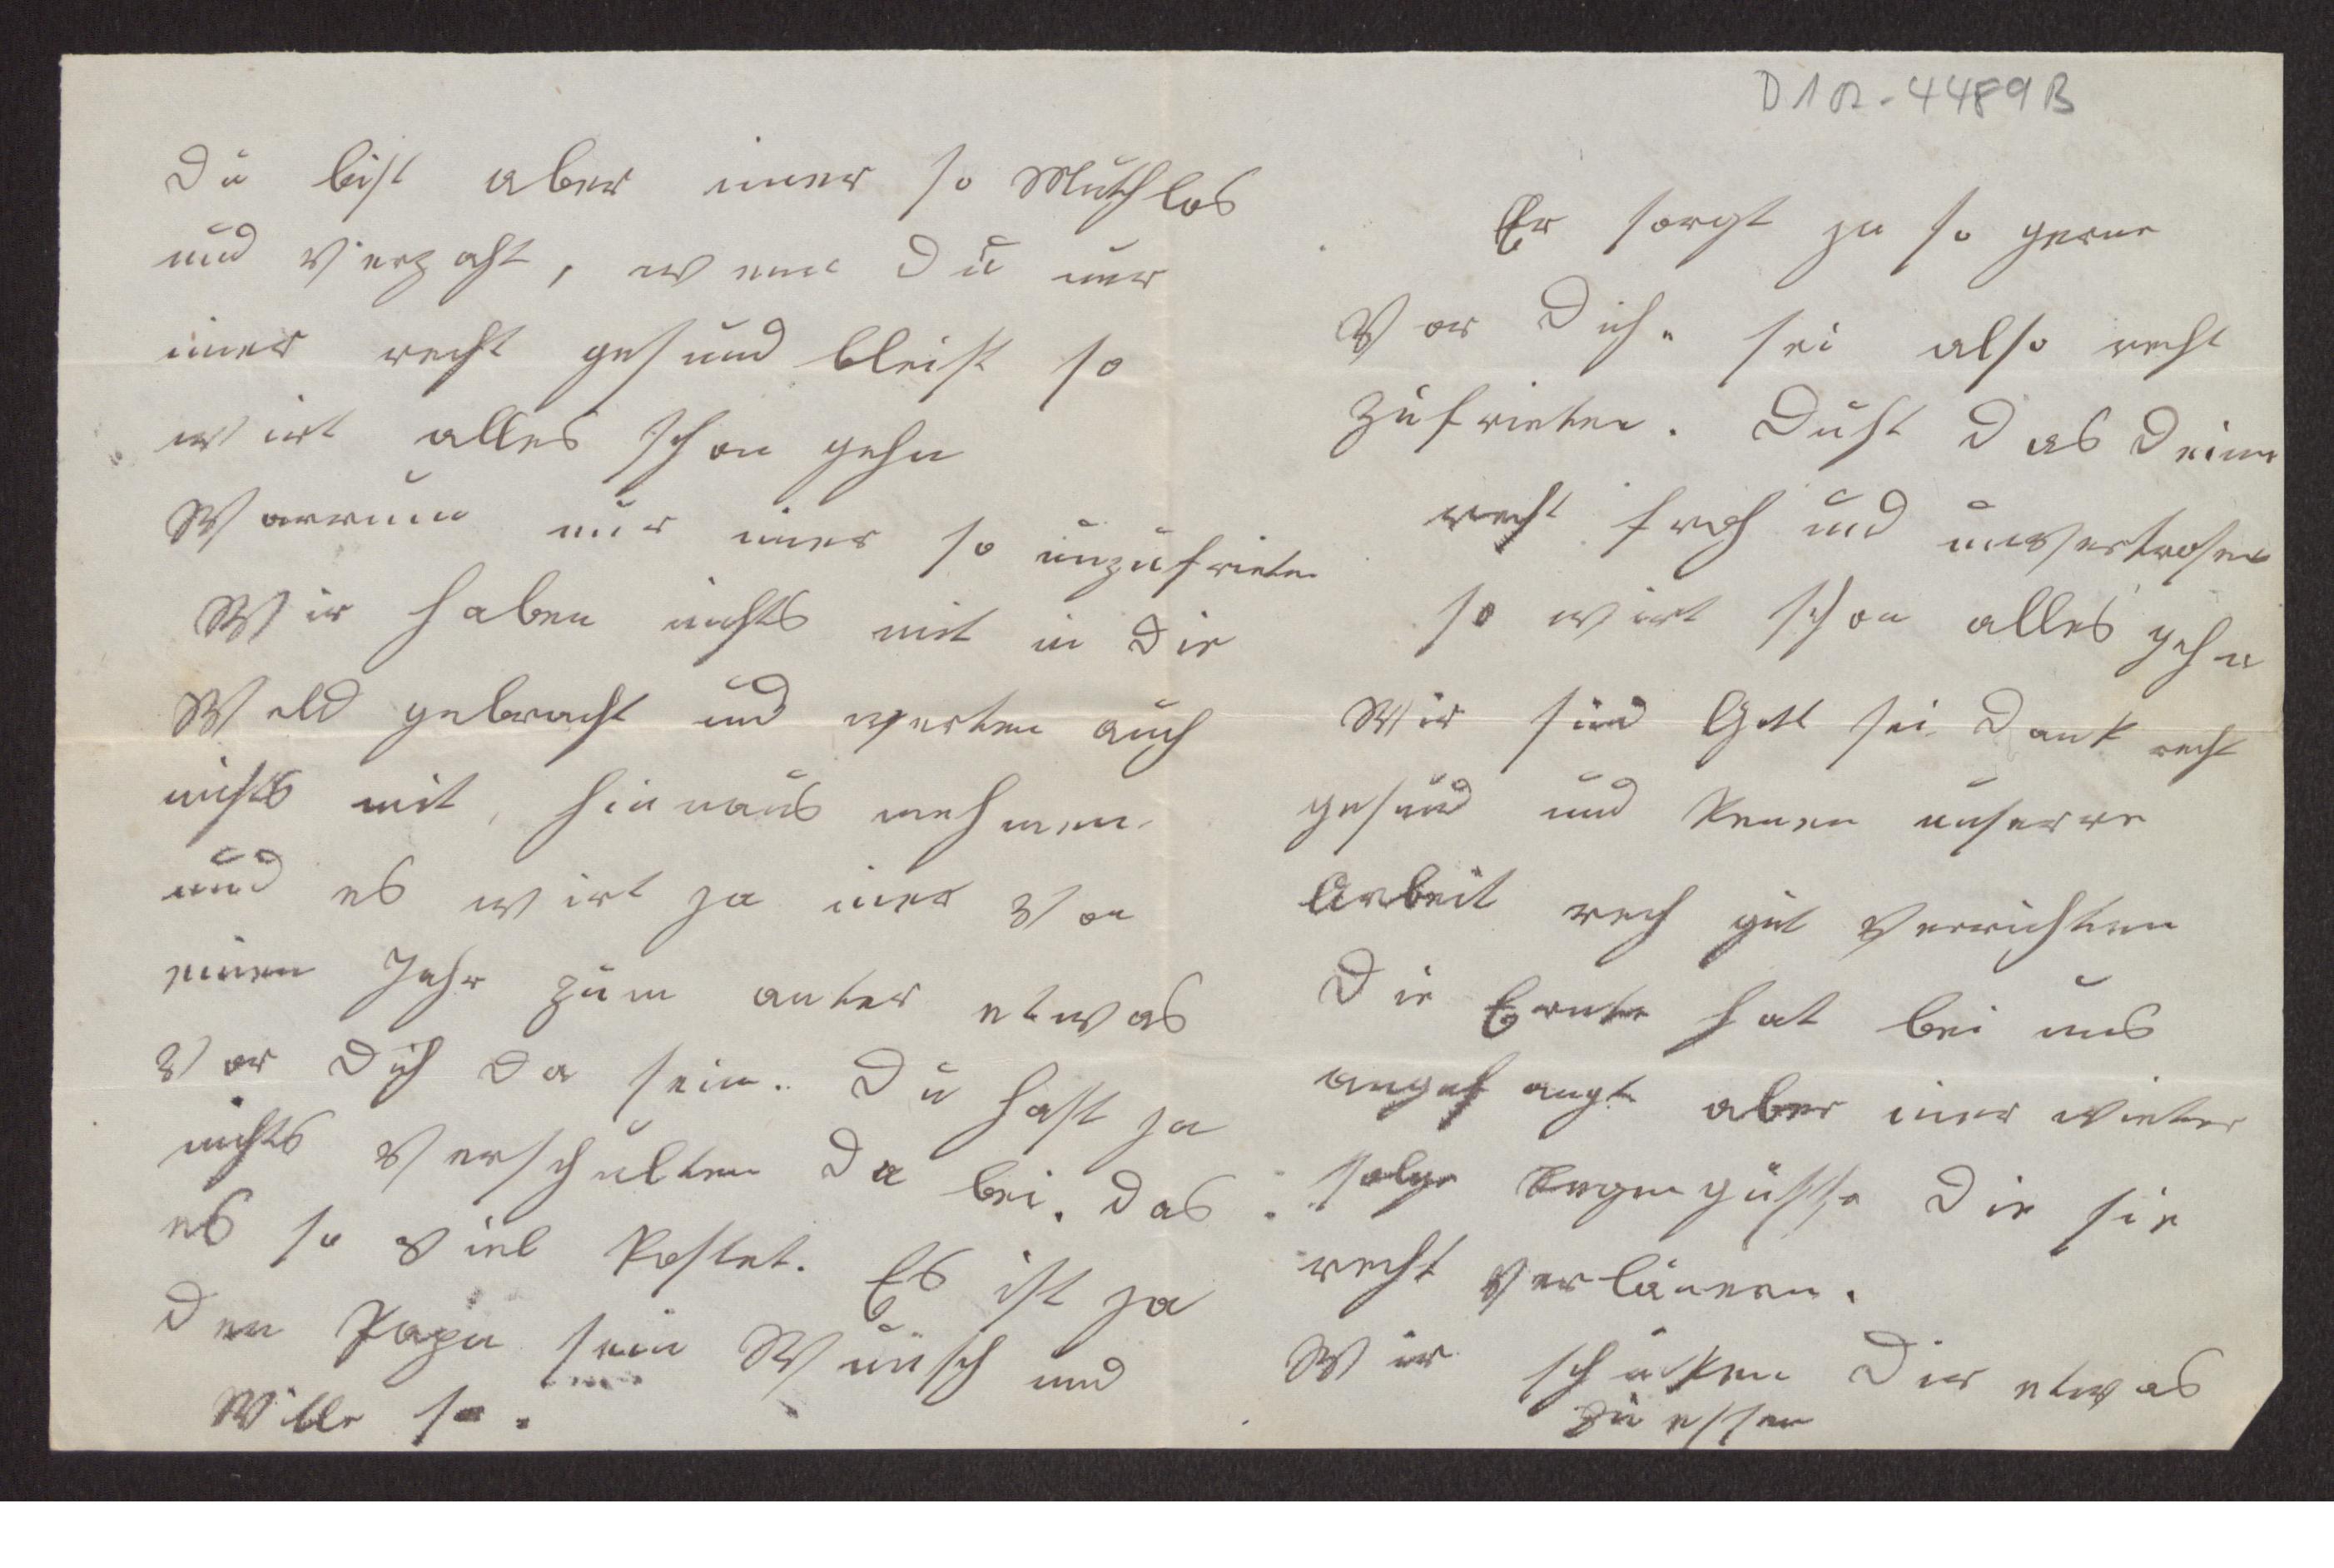 Du bist aber imer so Muthlos
und Verzaht, wenn Du nur
imer recht gesund bleist so
wirt alles schon gehn
Warrum nur imer so unzufrieten
Wir haben nichts mit in Die
Weld gebracht und werten auch
nichts mit, hinnaus nehmen
und es wirt ja imer Von
einen Jahr zum anter etwas
Vor Dich Da sein. Du hast ja
nichts Verschulten Da bei. Das
es so Viel kostet. Es ist ja
Den Papa sein Wunsch und
Wille so.
D1R-4489B
Er sorgt ja so gerne
Vor Dich. sei also recht
Zufrieten. Duhst Das Deine
recht froh und unvertrosen
so wirt schon alles gehn
Wir sind Gott sei Dank recht
gesund und kenen unserre
Arbeit rech gut Verrichten
Die Ernte hat bei uns
angefangt aber imer wieter
solge Regengüsse Die sie
recht Verlänern.
Wir schicken Dir etwas
zu essen